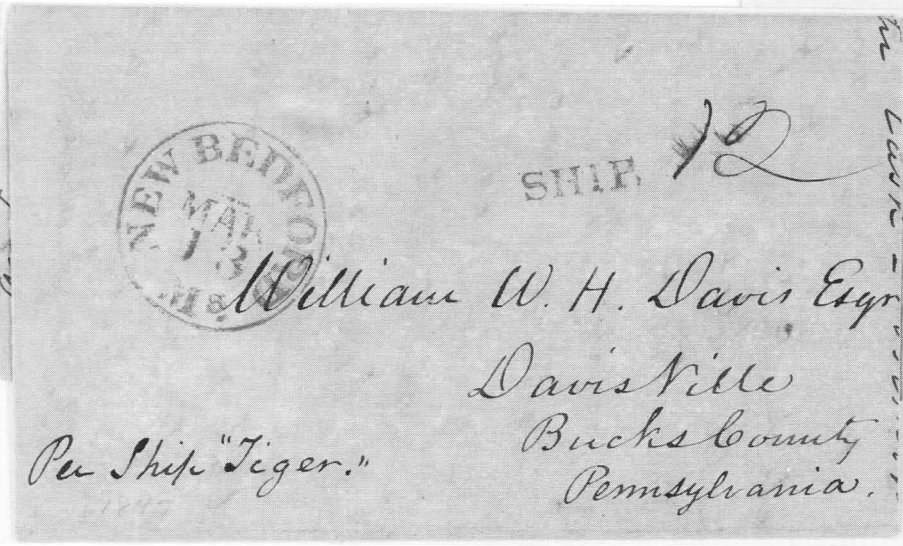 NEW BEDFORD
MAR
13
Ms.
SHIP
12
William W. H. Davis Esqr
DavisVille
Bucks County
Pennsylvania.
Per Ship "Tiger."